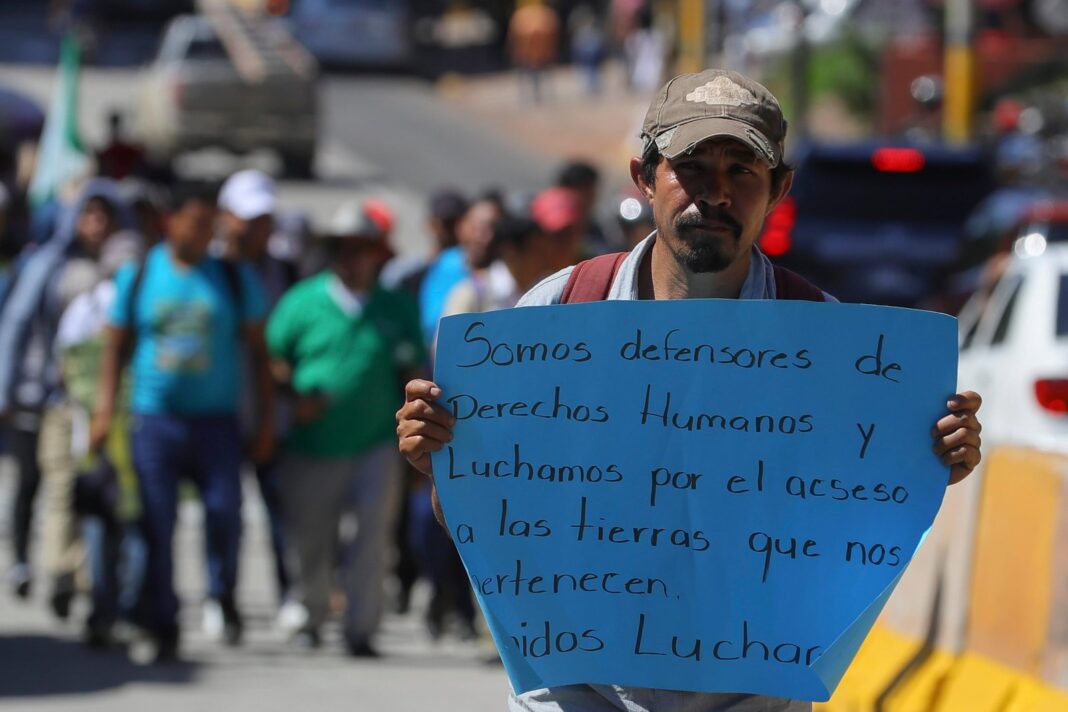 Somos defensores de
Derechos Humanos y
Luchamos por el acseso
a las tierras que nos
pertenecen.
nidos Luchar